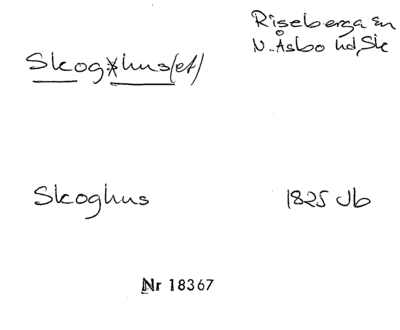 Riseberga sn
N. Åsbo hd, Sk
Skogshus(et)
Skoghus 1825 Jb
Nr 18367